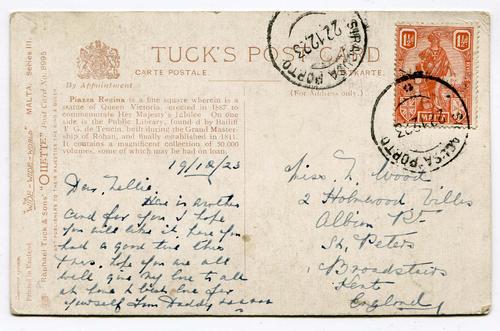 TUCK'S POST CARD
CARTE POSTALE.
POSTKARTE.
By Appointment
(For Address only.)
Piazza Regina is a fine square wherein is a
statue of Queen Victoria, erected in 1887 to
commemorate Her Majesty's Jubilee On one
side is the Public Library, founded by Bailiff
F. G. de Tencin, built during the Grand Master-
ship of Rohan, and finally established in 1811.
It contains a magnificent collection of 50,000
volumes, some of which may be had on loan.
Raphael Tuck & Sons' "OILETTE" Post Card No. 8995
"Wide-Wide-World" MALTA. Series III
Printed in England.
SIRACUSA PORTO
22.12.23
SIRACUSA PORTO
1½D
1½D
MALTA
19/12/23
Dear Nellie
Here is another
Card for you I hope
you will like it, hope you
had a good time this
Xmas. hope you are all
well give my love to all
at home & best love for
yourself from Daddy xxxxxx
Miss N. Wood
2 Holmwood Villas
Albion Rd.
St. Peters
Broadstairs
Kent
England